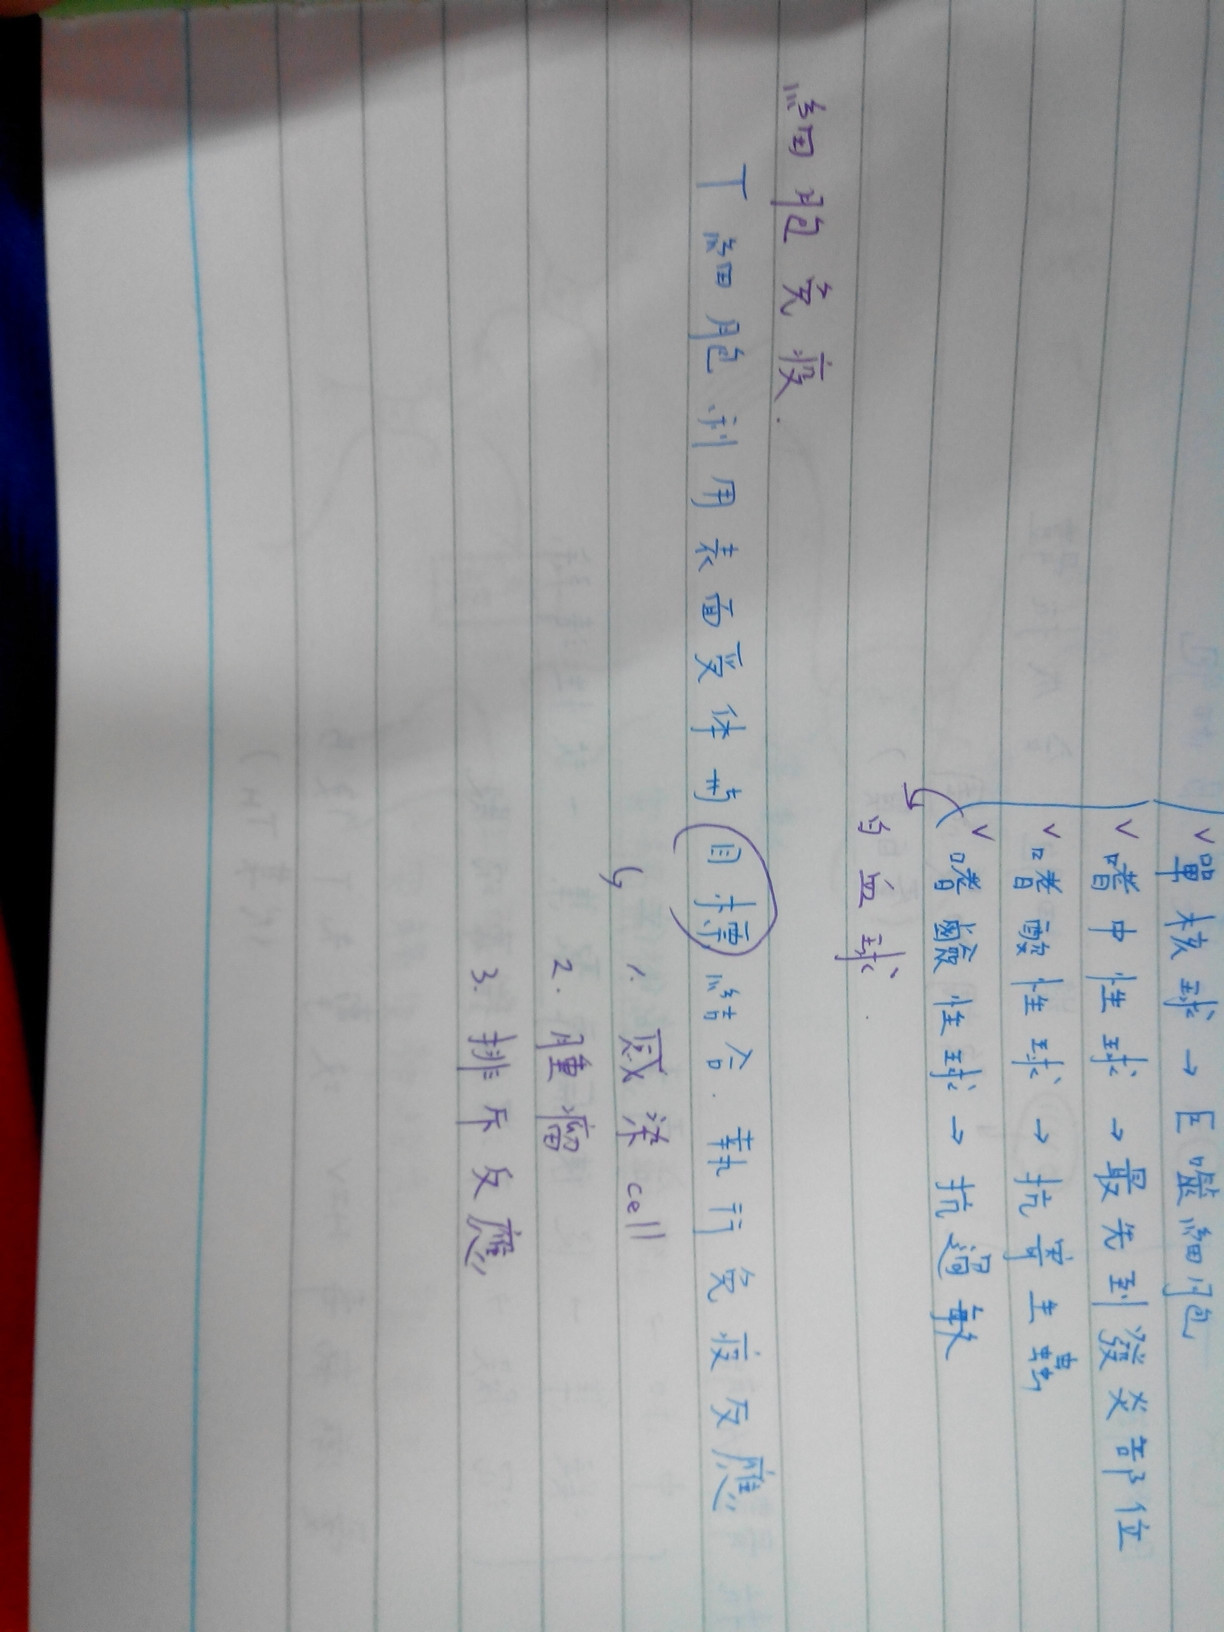 單核球→巨噬細胞
嗜中性球→最先到發炎部位
嗜酸性球→抗寄生蟲
嗜鹼性球→抗過敏
白血球.
細胞免疫.
T細胞利用表面受体与目標結合.執行免疫反應
1.感染cell
2.腫瘤
3.排斥反應